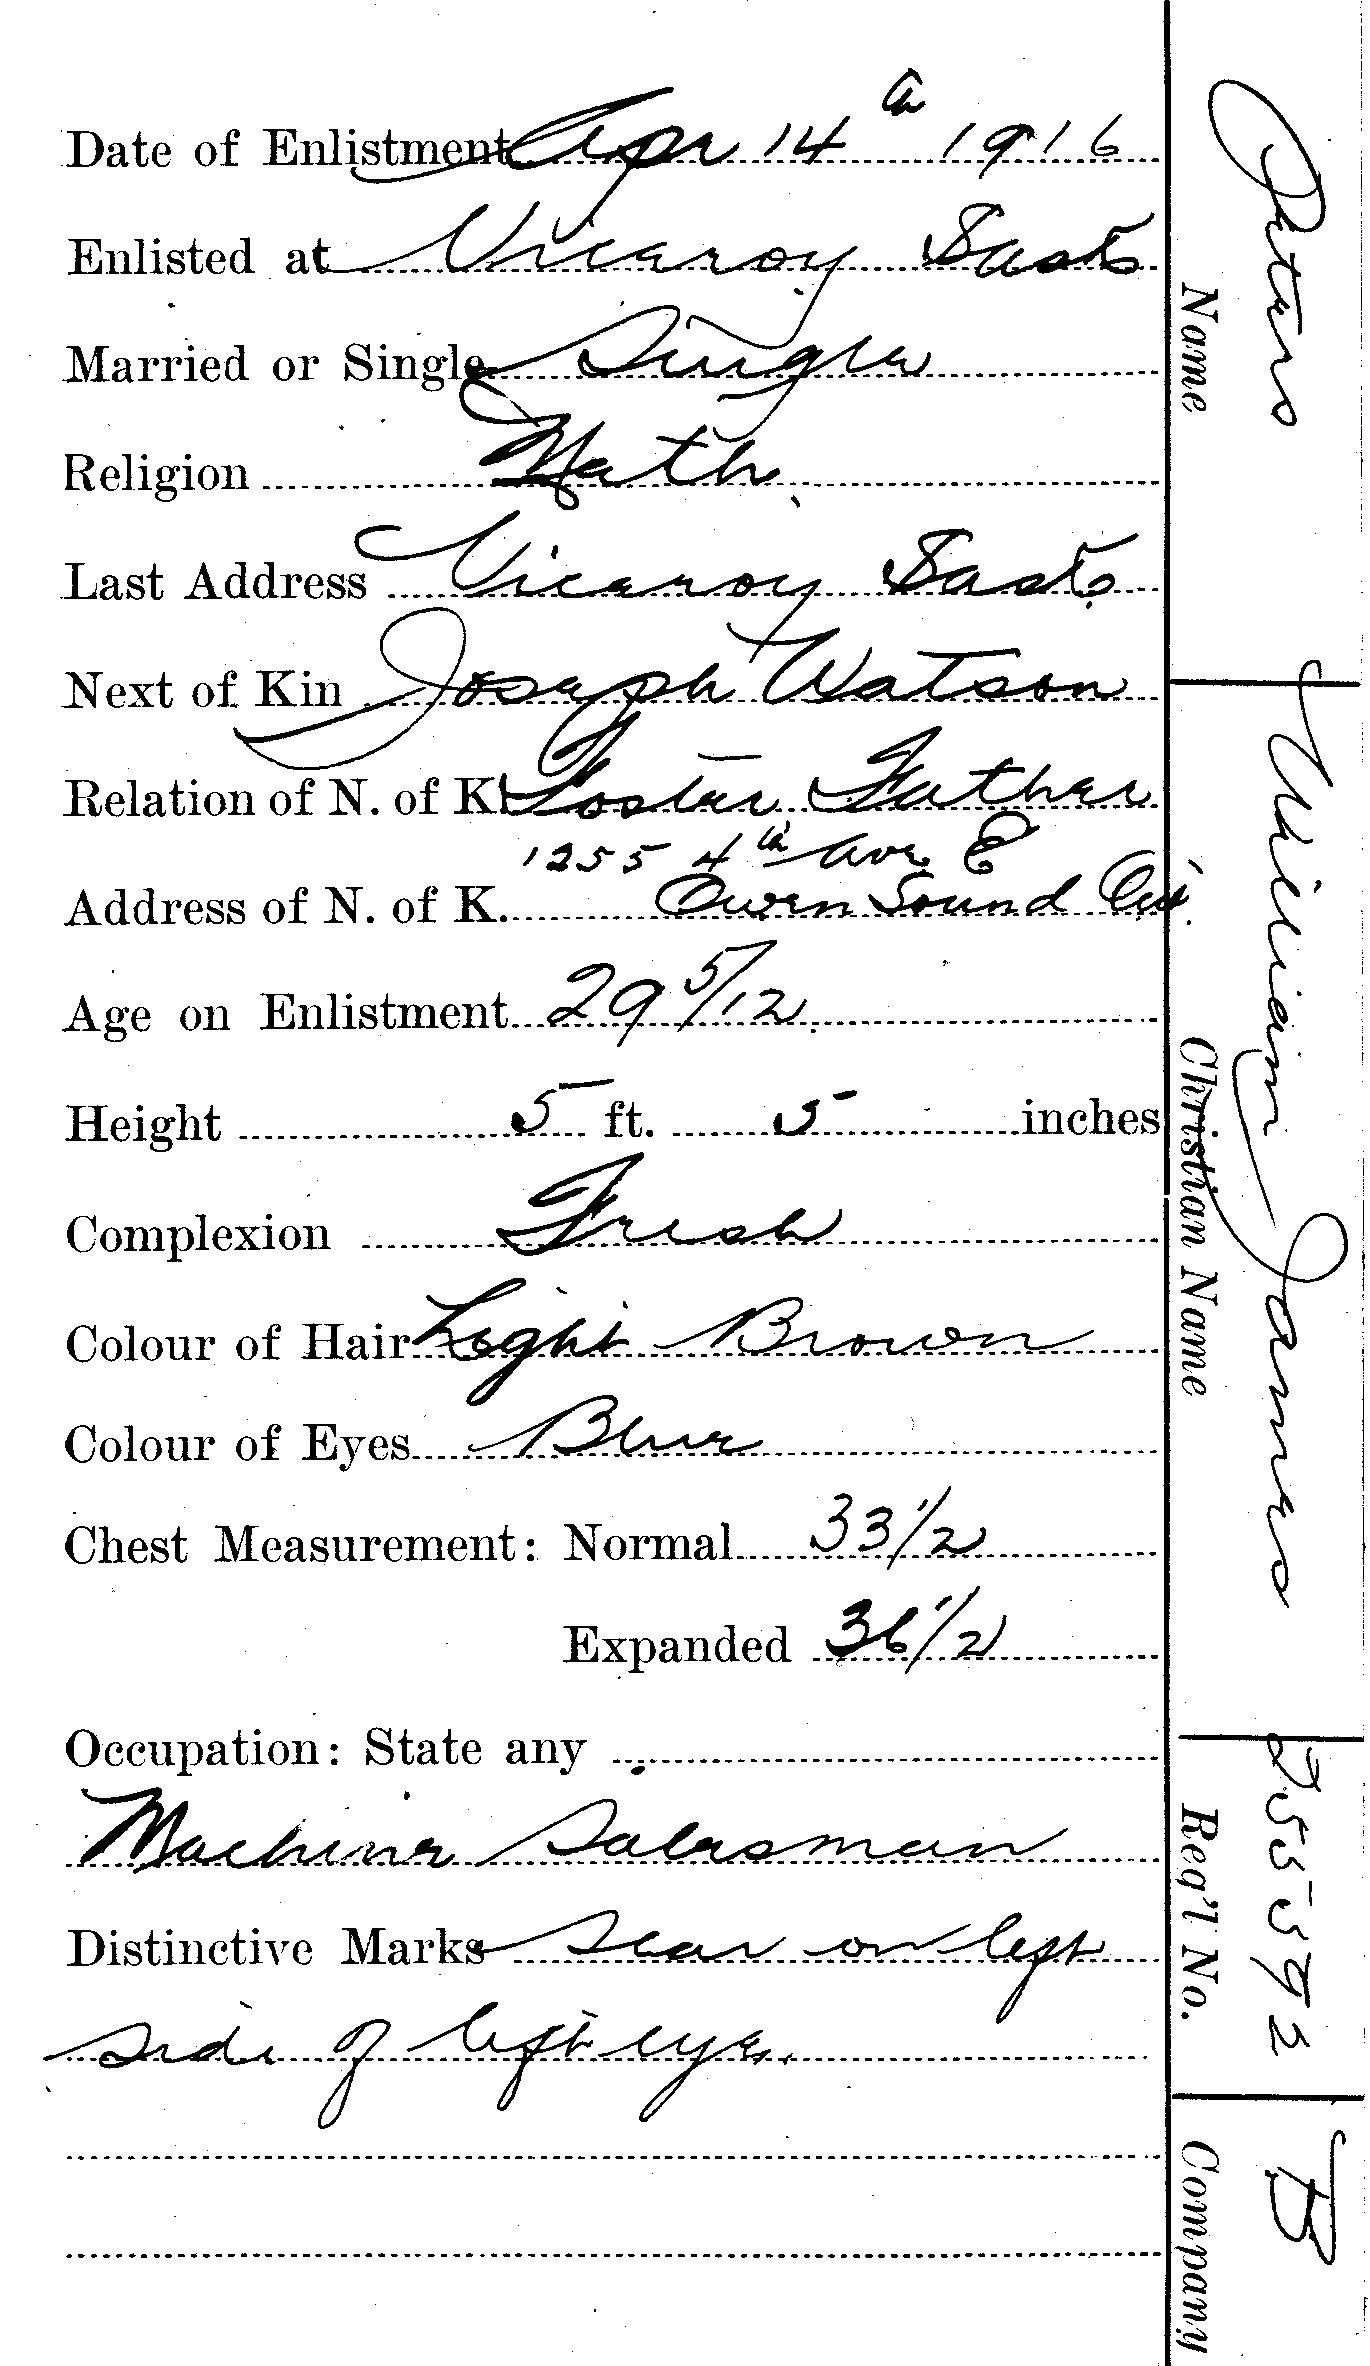 Date of Enlistment Apr 14th 1916
Enlisted at Viceroy Sask
Married or Single Single
Religion Meth.
Last Address Viceroy Sask.
Next of Kin Joseph Watson
Relation of N. of K. Foster Father
1255 4th Ave E
Address of N. of K. Owen Sound Ont.
Age on Enlistment 29 5/12
Height 5 ft. 5 inches
Complexion Fresh
Colour of Hair Light Brown
Colour of Eyes Blue
Chest Measurement: Normal 33 1/2
Expanded 36 1/2
Occupation: State any
Machine Salesman
Distinctive Marks Scar on left
side of left eye.
Peters
Name
William James
Christian Name
255392
Reg'l No.
B
Company